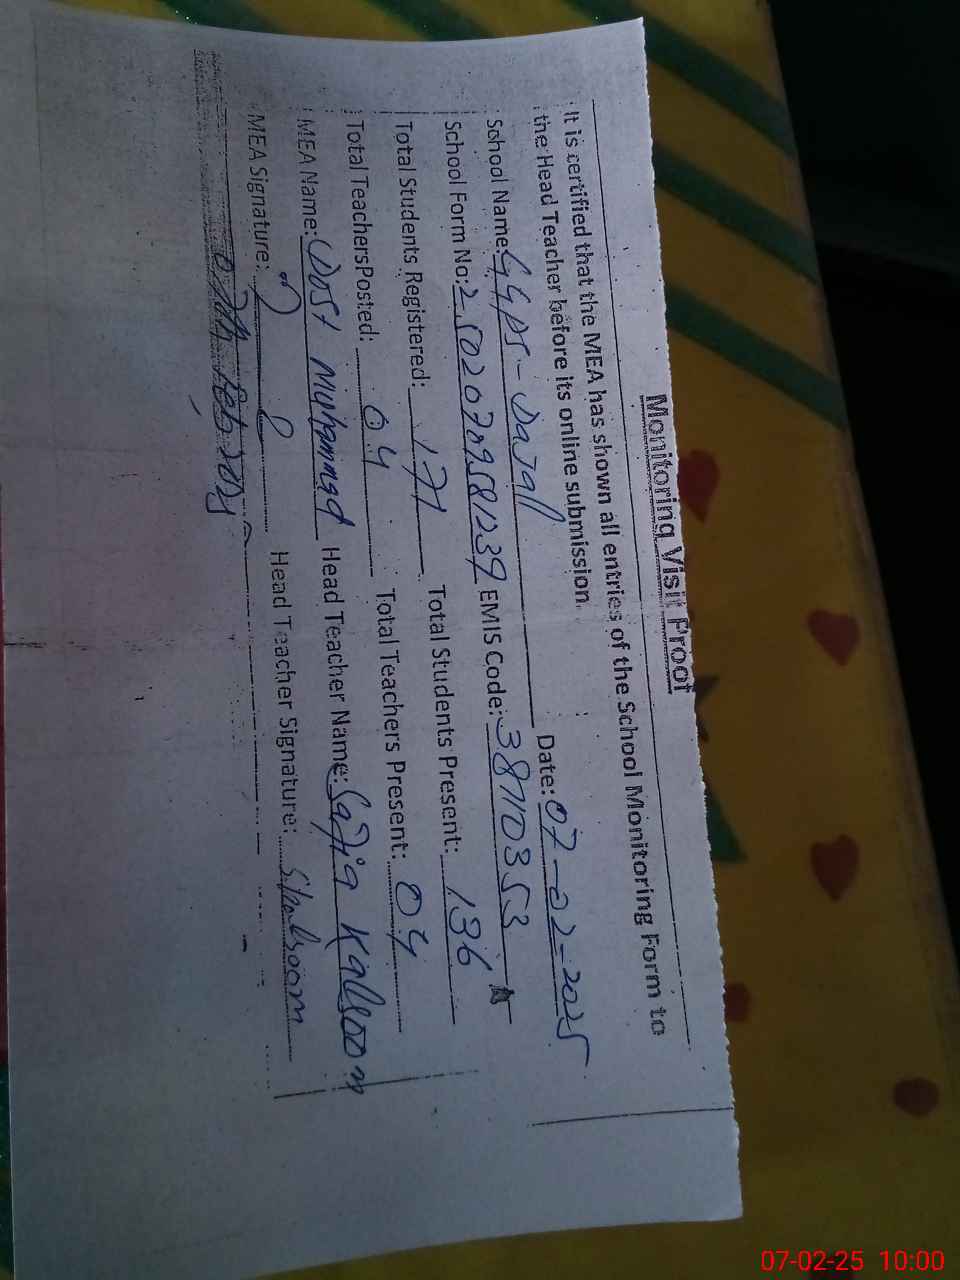 Monitoring Visit Proof
It is certified that the MEA has shown all entries of the School Monitoring Form to
the Head Teacher before its online submission.
Date: 07-02-2025
School Name: GGPS - Dajal
School Form No: EMIS Code: 38710353
Total Students Registered: 171 Total Students Present: 136
Total TeachersPosted: 04 Total Teachers Present: 04
MEA Name: Dost Muhammad Head Teacher Name: Safia Kalsoom
MEA Signature: Head Teacher Signature: S.Kalsoom
07-02-25 10:00